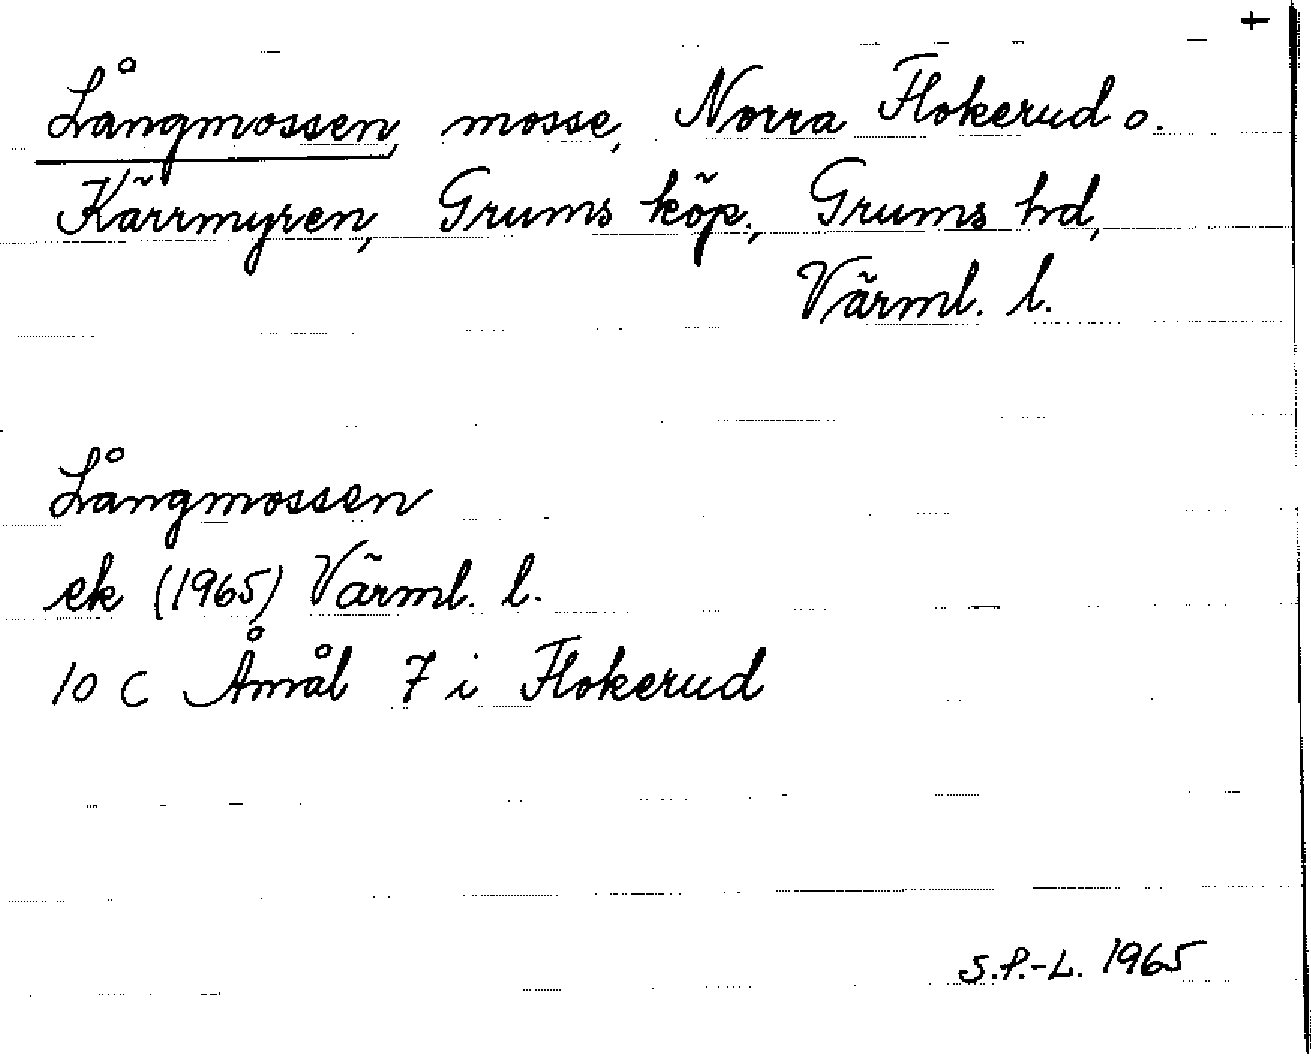 +
Långmossen, mosse, Norra Flokerud o.
Kärrmyren, Grums köp., Grums hd,
Värml. l.
Långmossen
ek (1965) Värml. l.
10 C Åmål 7 i Flokerud
S.P.-L. 1965